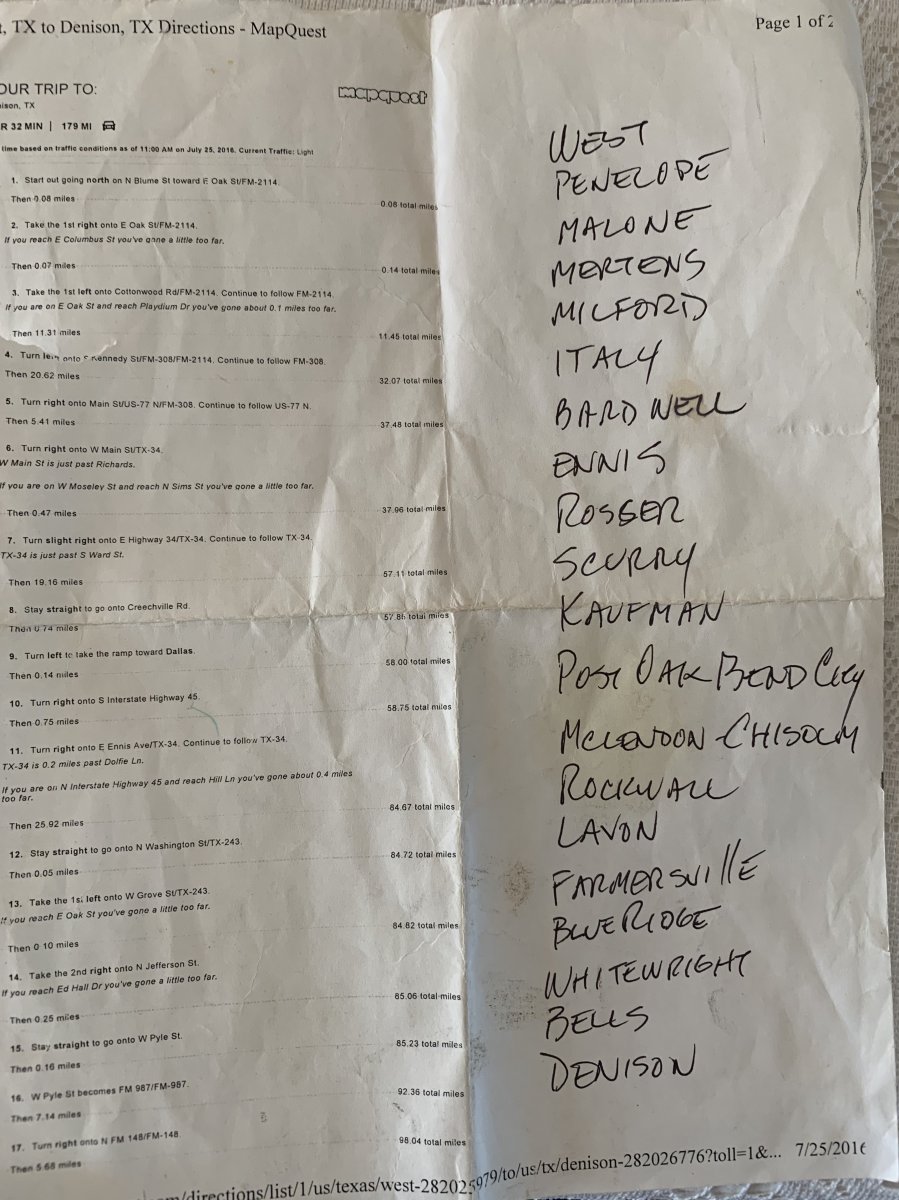 , TX to Denison, TX Directions - MapQuest
Page 1 of 2
OUR TRIP TO:
mapquest
ison, TX
R 32 MIN | 179 MI
time based on traffic conditions as of 11:00 AM on July 25, 2016. Current Traffic: Light
1. Start out going north on N Blume St toward E Oak St/FM-2114.
Then 0.08 miles
0.08 total miles
2. Take the 1st right onto E Oak St/FM-2114.
If you reach E Columbus St you've gone a little too far.
Then 0.07 miles
0.14 total miles
3. Take the 1st left onto Cottonwood Rd/FM-2114. Continue to follow FM-2114.
If you are on E Oak St and reach Playdium Dr you've gone about 0.1 miles too far.
Then 11.31 miles
11.45 total miles
4. Turn left onto S Kennedy St/FM-308/FM-2114. Continue to follow FM-308.
Then 20.62 miles
32.07 total miles
5. Turn right onto Main St/US-77 N/FM-308. Continue to follow US-77 N.
Then 5.41 miles
37.48 total miles
6. Turn right onto W Main St/TX-34.
W Main St is just past Richards.
If you are on W Moseley St and reach N Sims St you've gone a little too far.
Then 0.47 miles
37.96 total miles
7. Turn slight right onto E Highway 34/TX-34. Continue to follow TX-34.
TX-34 is just past S Ward St.
Then 19.16 miles
57.11 total miles
8. Stay straight to go onto Creechville Rd.
Then 0.74 miles
57.86 total miles
9. Turn left to take the ramp toward Dallas.
Then 0.14 miles
58.00 total miles
10. Turn right onto S Interstate Highway 45.
Then 0.75 miles
58.75 total miles
11. Turn right onto E Ennis Ave/TX-34. Continue to follow TX-34.
TX-34 is 0.2 miles past Dolfie Ln.
If you are on N Interstate Highway 45 and reach Hill Ln you've gone about 0.4 miles
too far.
Then 25.92 miles
84.67 total miles
12. Stay straight to go onto N Washington St/TX-243.
Then 0.05 miles
84.72 total miles
13. Take the 1st left onto W Grove St/TX-243.
If you reach E Oak St you've gone a little too far.
Then 0.10 miles
84.82 total miles
14. Take the 2nd right onto N Jefferson St.
If you reach Ed Hall Dr you've gone a little too far.
Then 0.25 miles
85.06 total miles
15. Stay straight to go onto W Pyle St.
Then 0.16 miles
85.23 total miles
16. W Pyle St becomes FM 987/FM-987.
Then 7.14 miles
92.36 total miles
17. Turn right onto N FM 148/FM-148.
Then 5.68 miles
98.04 total miles
WEST
PENELOPE
MALONE
MERTENS
MILFORD
ITALY
BARDWELL
ENNIS
ROSSER
SCURRY
KAUFMAN
POST OAK BEND CITY
MCLENDON-CHISOLM
ROCKWALL
LAVON
FARMERSVILLE
BLUE RIDGE
WHITEWRIGHT
BELLS
DENISON
/directions/list/1/us/texas/west-282025979/to/us/tx/denison-282026776?toll=1&... 7/25/2016